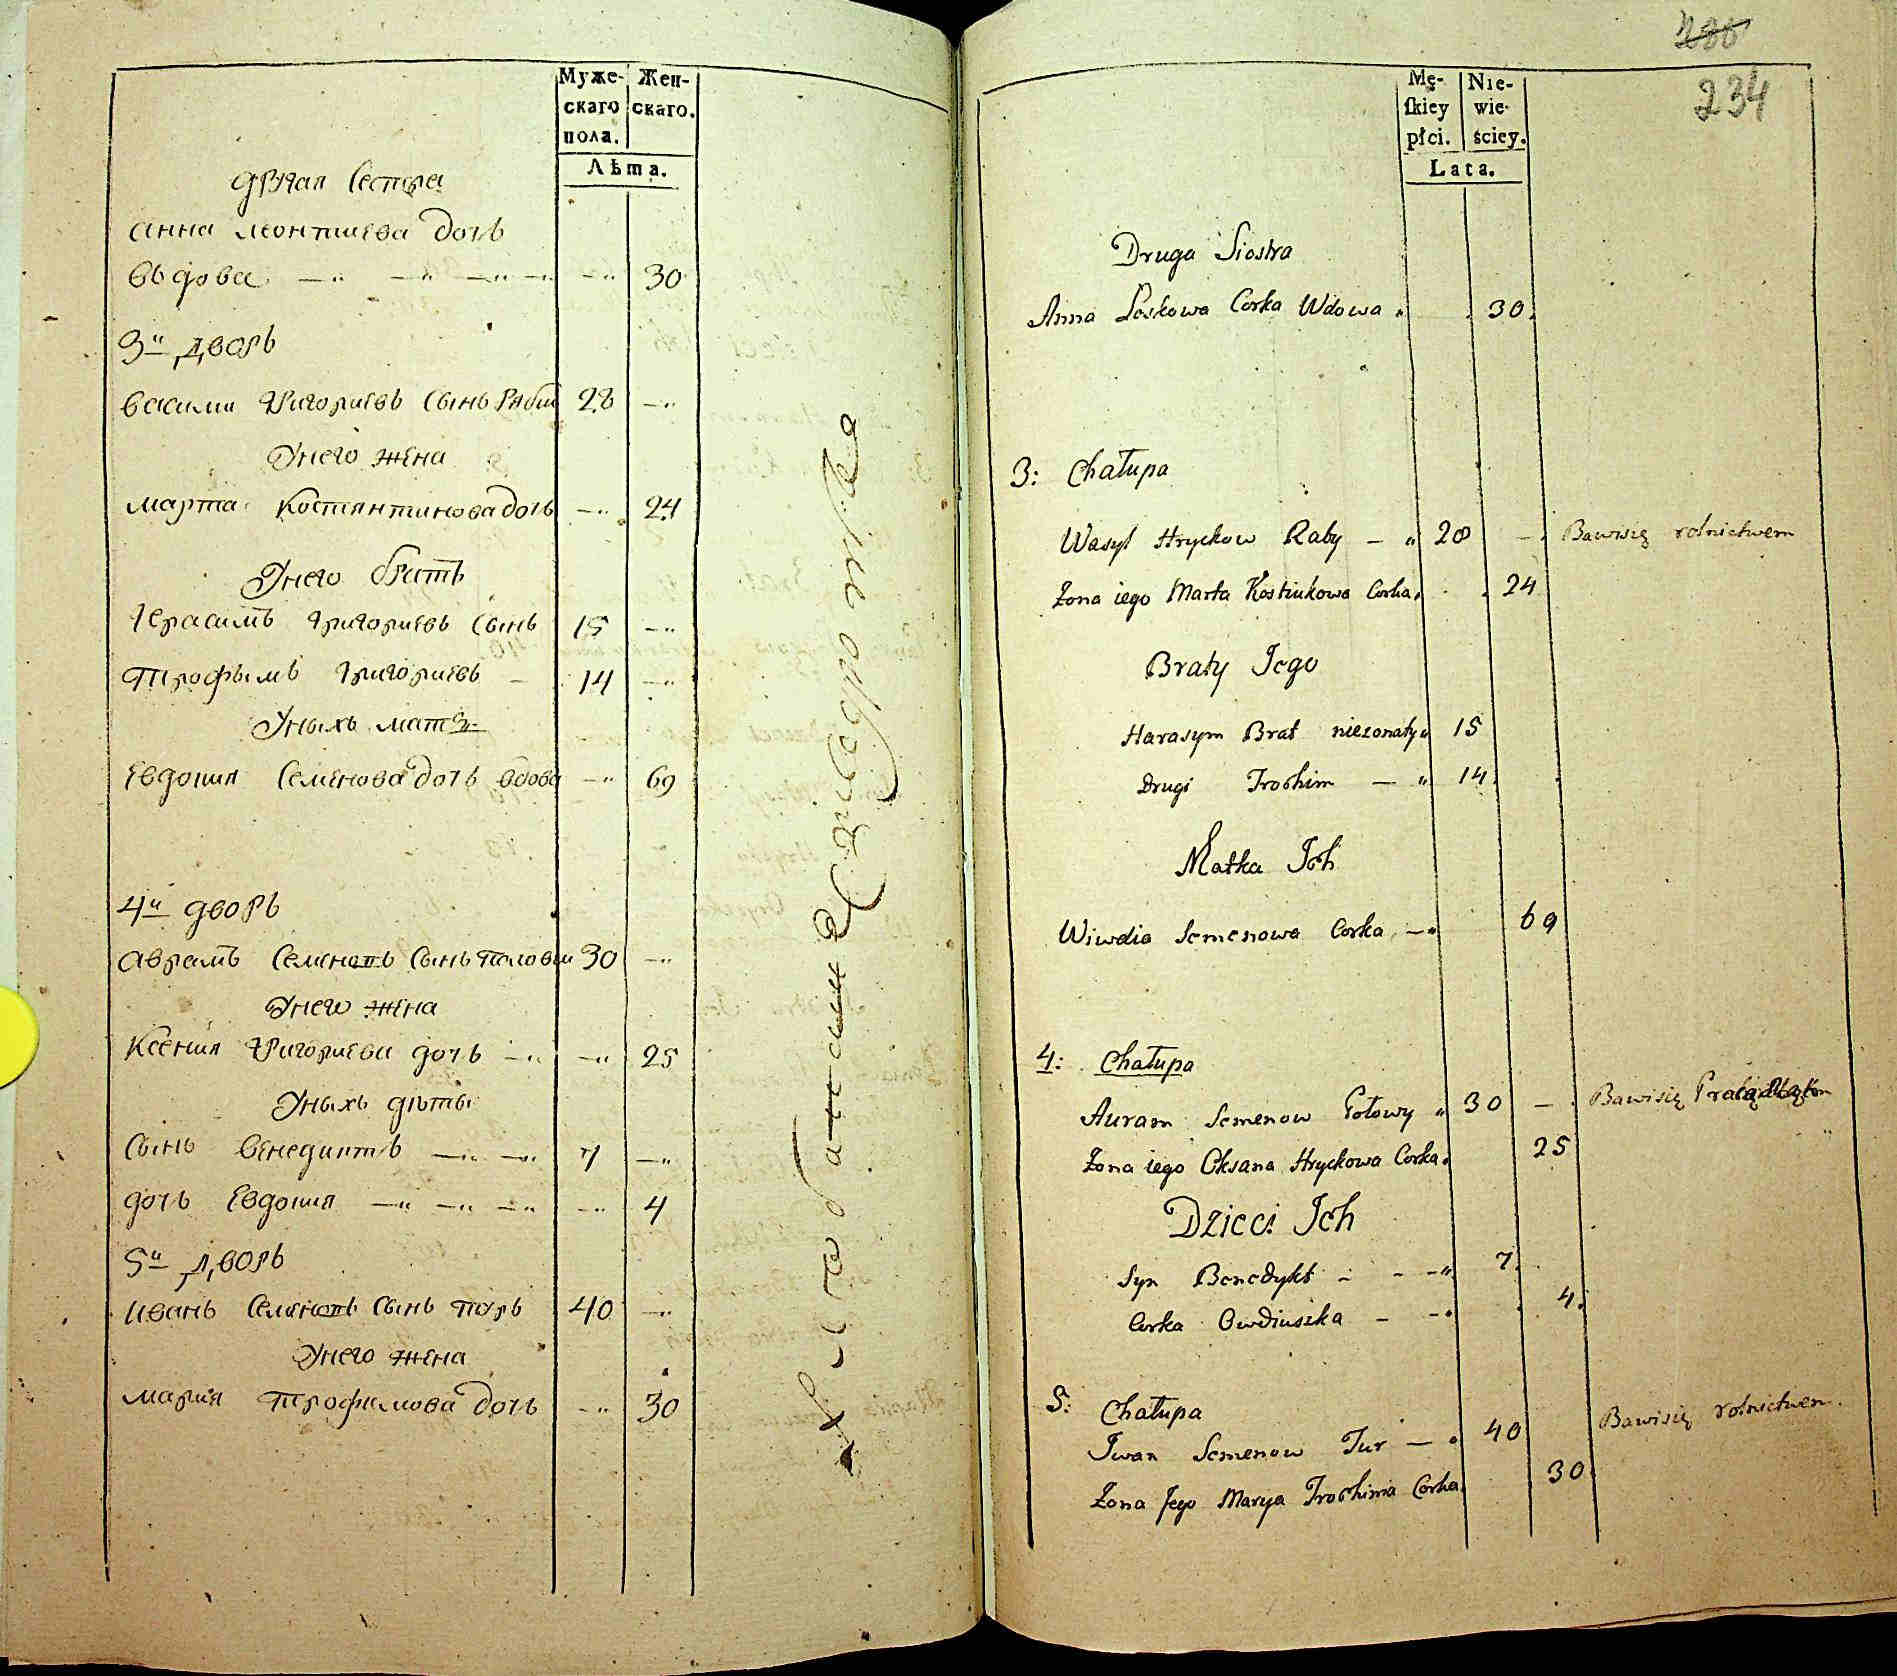 Муже-
скаго
пола.
Жен-
скаго.
Лѣта.
Другая Сестра
Анна Леонтиева дочь
вьдова — — — — — 30
3й Дворъ
Василий Григориевъ Сынъ Рабый 28 —
У него жена
Марта Костянтинова дочь — 24
У него братъ
Герасимъ Григориевъ Сынъ 15 —
Трофымъ Григориевъ — 14 —
У ныхъ мать
Евдокия Семенова дочь вдова — 69
4й дворъ
Аврамъ Семеновъ Сынъ Головый 30 —
У него жена
Ксения Григориева дочь — — 25
У ныхъ дѣты
Сынъ Венедиктъ — — 7 —
дочь Евдокия — — — — 4
5й Дворъ
Иванъ Семеновъ Сынъ Туръ 40 —
У него жена
Мария Трофимова дочь — 30
234
Mę-
skiey
płci.
Nie-
wie-
ściey.
Lata.
Druga Siostra
Anna Leskowa Corka Wdowa 30.
3: Chałupa
Wasyl Hryckow Raby — 28 — Bawisię rolnictwem
Żona iego Marta Kostiukowa Corka. 24
Braty Jego
Harasym Brat nieżonaty 15
Drugi Trochim — 14.
Matka Ich
Wiwdia Semenowa Corka — 69
4: Chałupa
Auram Semenow Gołowy 30 — Bawisię
Żona iego Oksana Hryckowa Corka. 25
Dzieci Ich
Syn Benedykt - - - 7.
Corka Owdiuszka - - 4.
5: Chałupa
Iwan Semenow Tur — 40 Bawisię rolnictwem.
Żona Jego Marya Trochima Corka 30